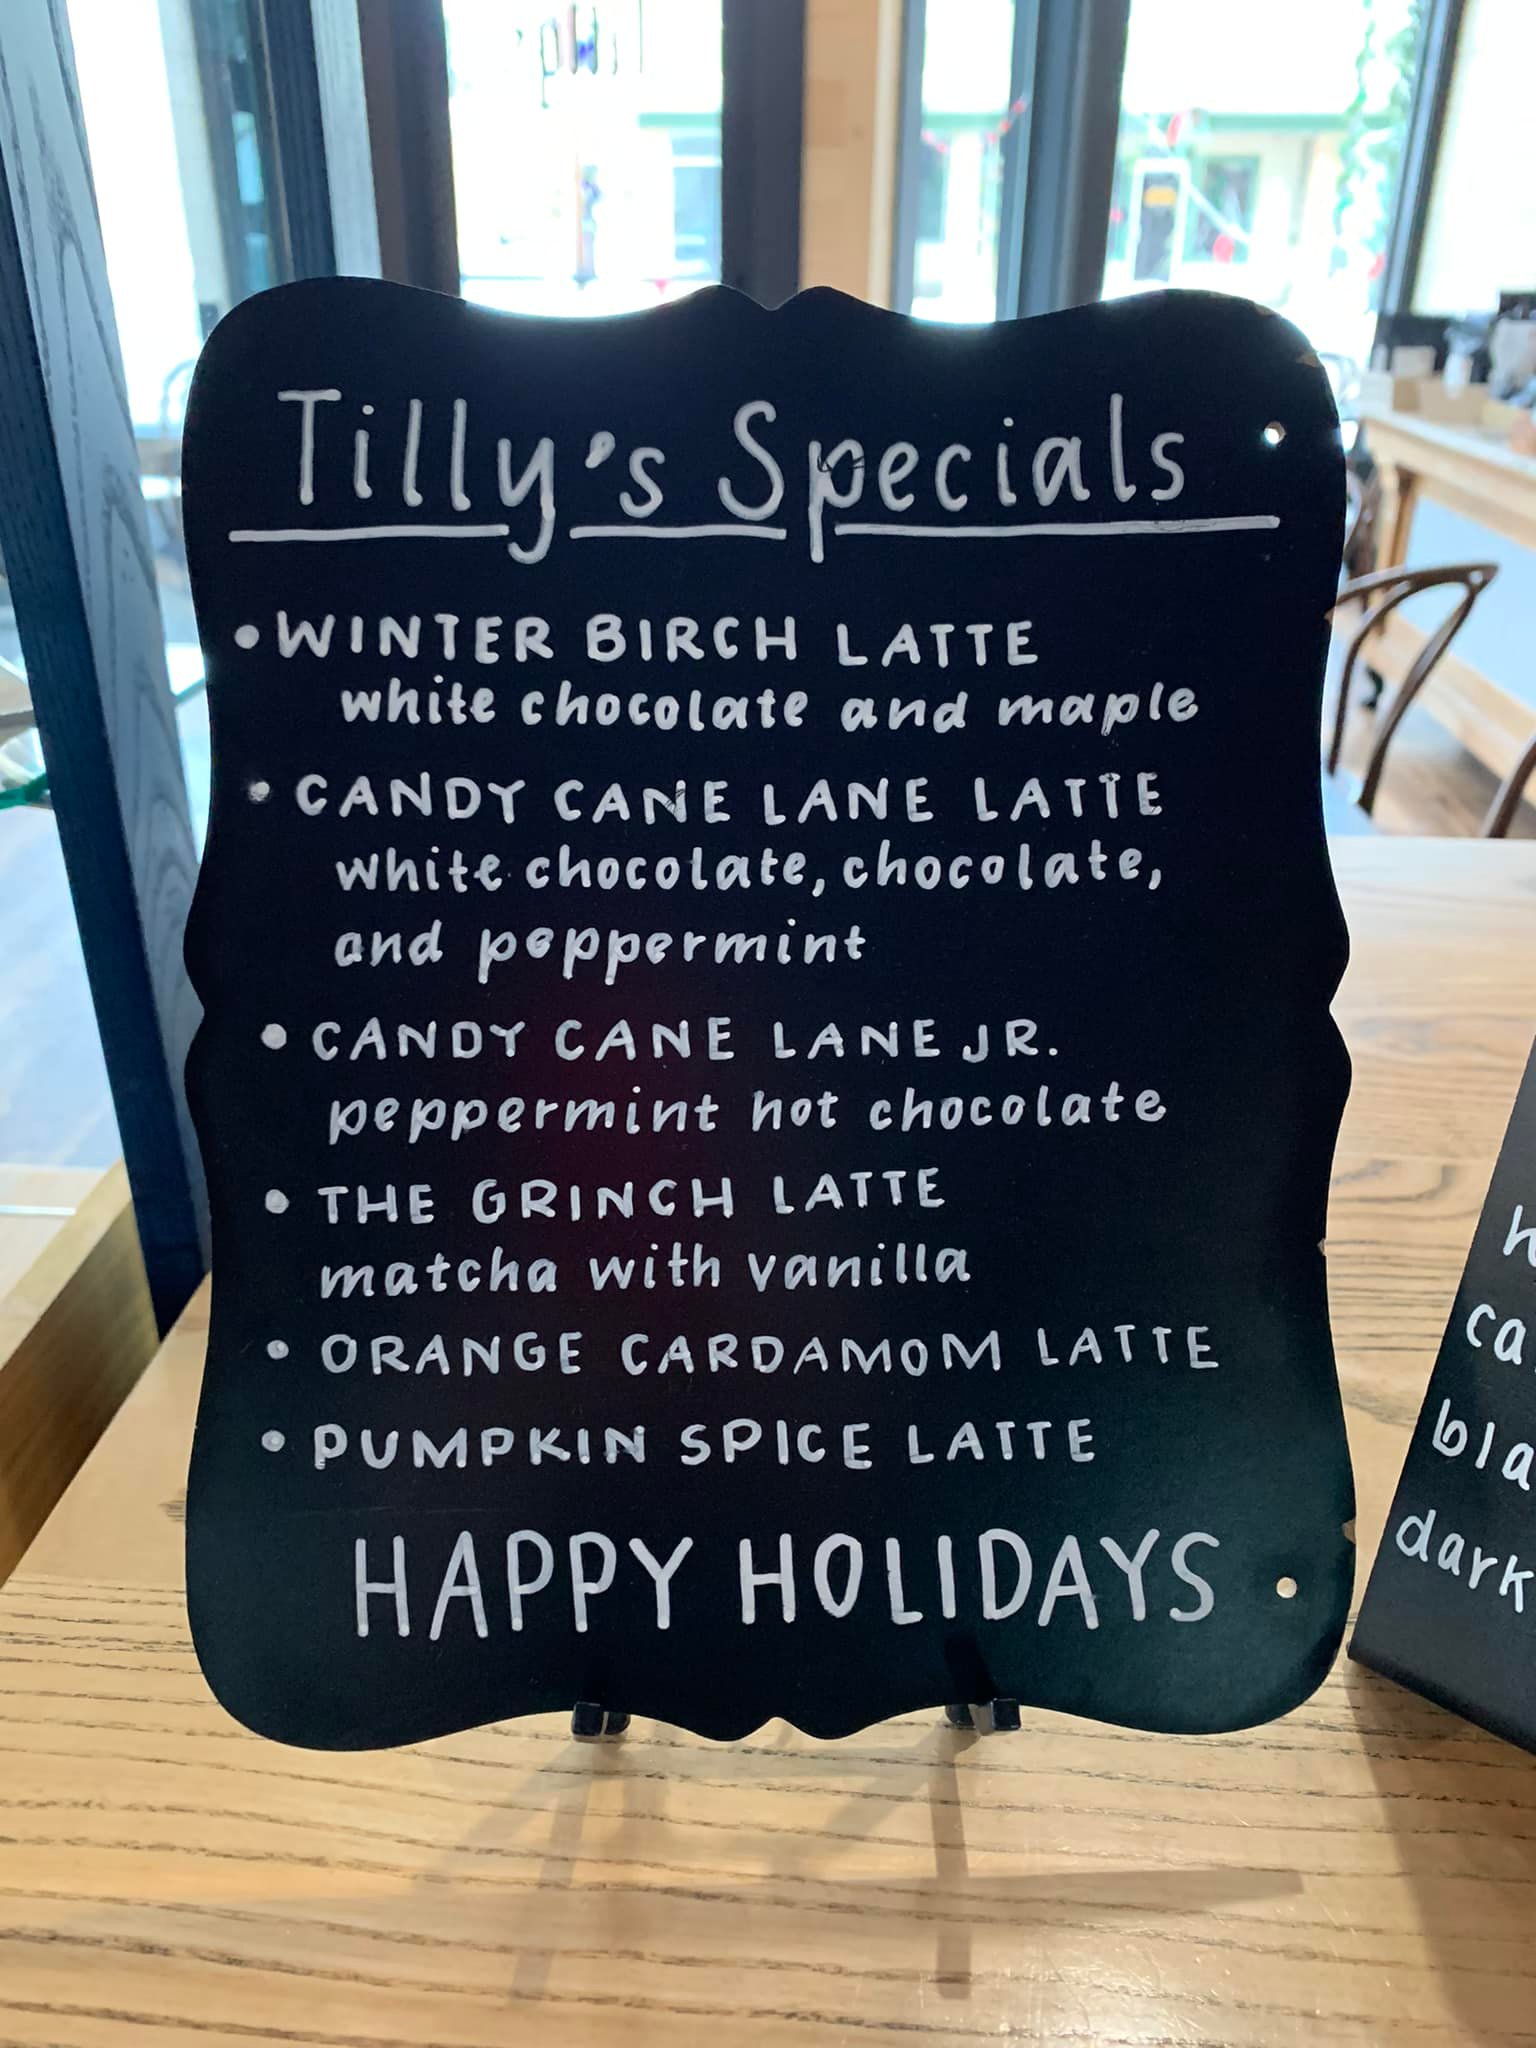 Tilly's Specials
• WINTER BIRCH LATTE
white chocolate and maple
• CANDY CANE LANE LATTE
white chocolate, chocolate,
and peppermint
• CANDY CANE LANE JR.
peppermint hot chocolate
• THE GRINCH LATTE
matcha with vanilla
• ORANGE CARDAMOM LATTE
• PUMPKIN SPICE LATTE
HAPPY HOLIDAYS
ca
bla
dark